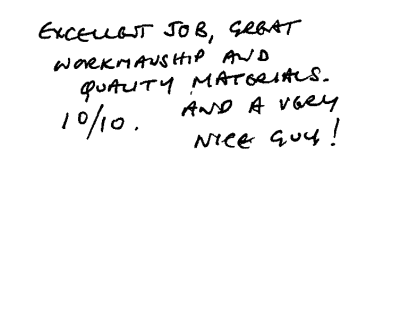 EXCELLENT JOB, GREAT
WORKMANSHIP AND
QUALITY MATERIALS.
10/10. AND A VERY
NICE GUY!